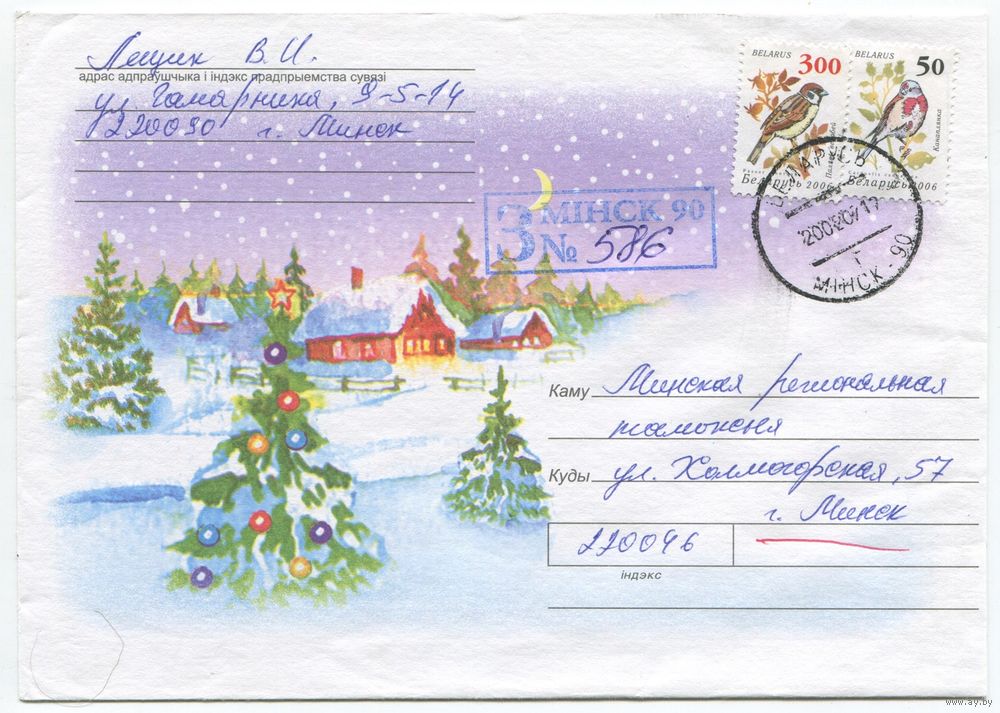 Лещик В. И.
адрас адпраўшчыка і індэкс прадпрыемства сувязі
ул. Гамарника, 9-5-14
220090 г. Минск
BELARUS 300
Беларусь 2006
BELARUS 50
Канаплянка
Беларусь 2006
БЕЛАРУСЬ
МІНСК - 90
З МІНСК 90
№ 586
Каму Минская региональная
таможня
Куды ул. Холмогорская, 57
г. Минск
220046
індэкс
www.ay.by